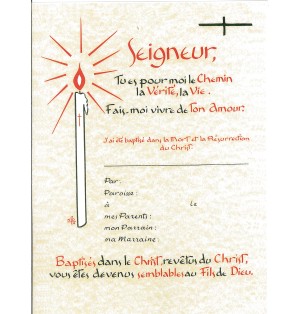 Seigneur,
Tu es pour moi le Chemin
la Vérité, la Vie.
Fais-moi vivre de Ton Amour.
J'ai été baptisé dans la Mort et la Résurrection
du Christ
Par:
Paroisse:
à le
mes Parents:
mon Parrain:
ma Marraine:
Baptisés dans le Christ, revêtus du Christ,
vous êtes devenus semblables au Fils de Dieu.